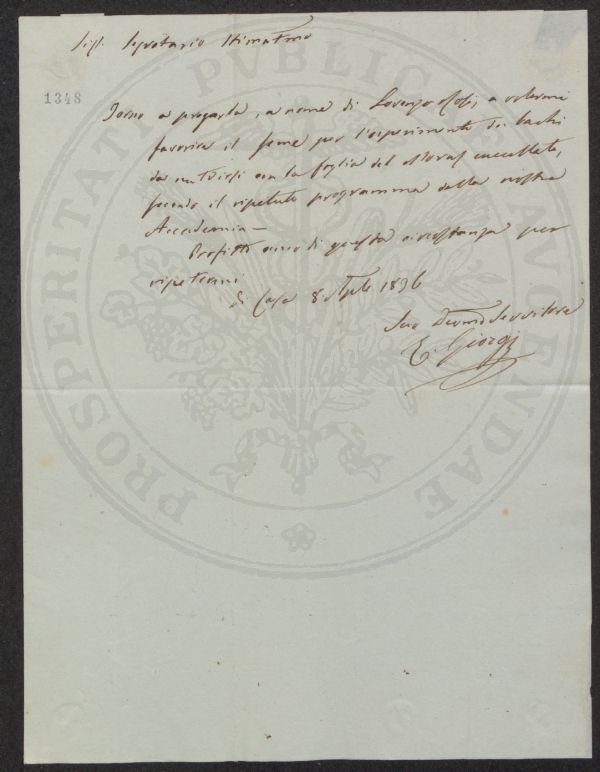 Sigr. Segretario Stimatmo
1348
Torno a pregarla, a nome di Lorenzo Mosi, a volermi
favorire il seme per l'esperimento di bachi
da nutrirsi con la foglia del Moras cucullata,
secondo il ripetuto programma della nostra
Accademia —
Profitto di questa circostanza per
ripetermi
di Casa 8. Aprile 1836
Suo Devmo Servitore
E. Giorgj
PROSPERITATI PUBLICAE AUGENDAE